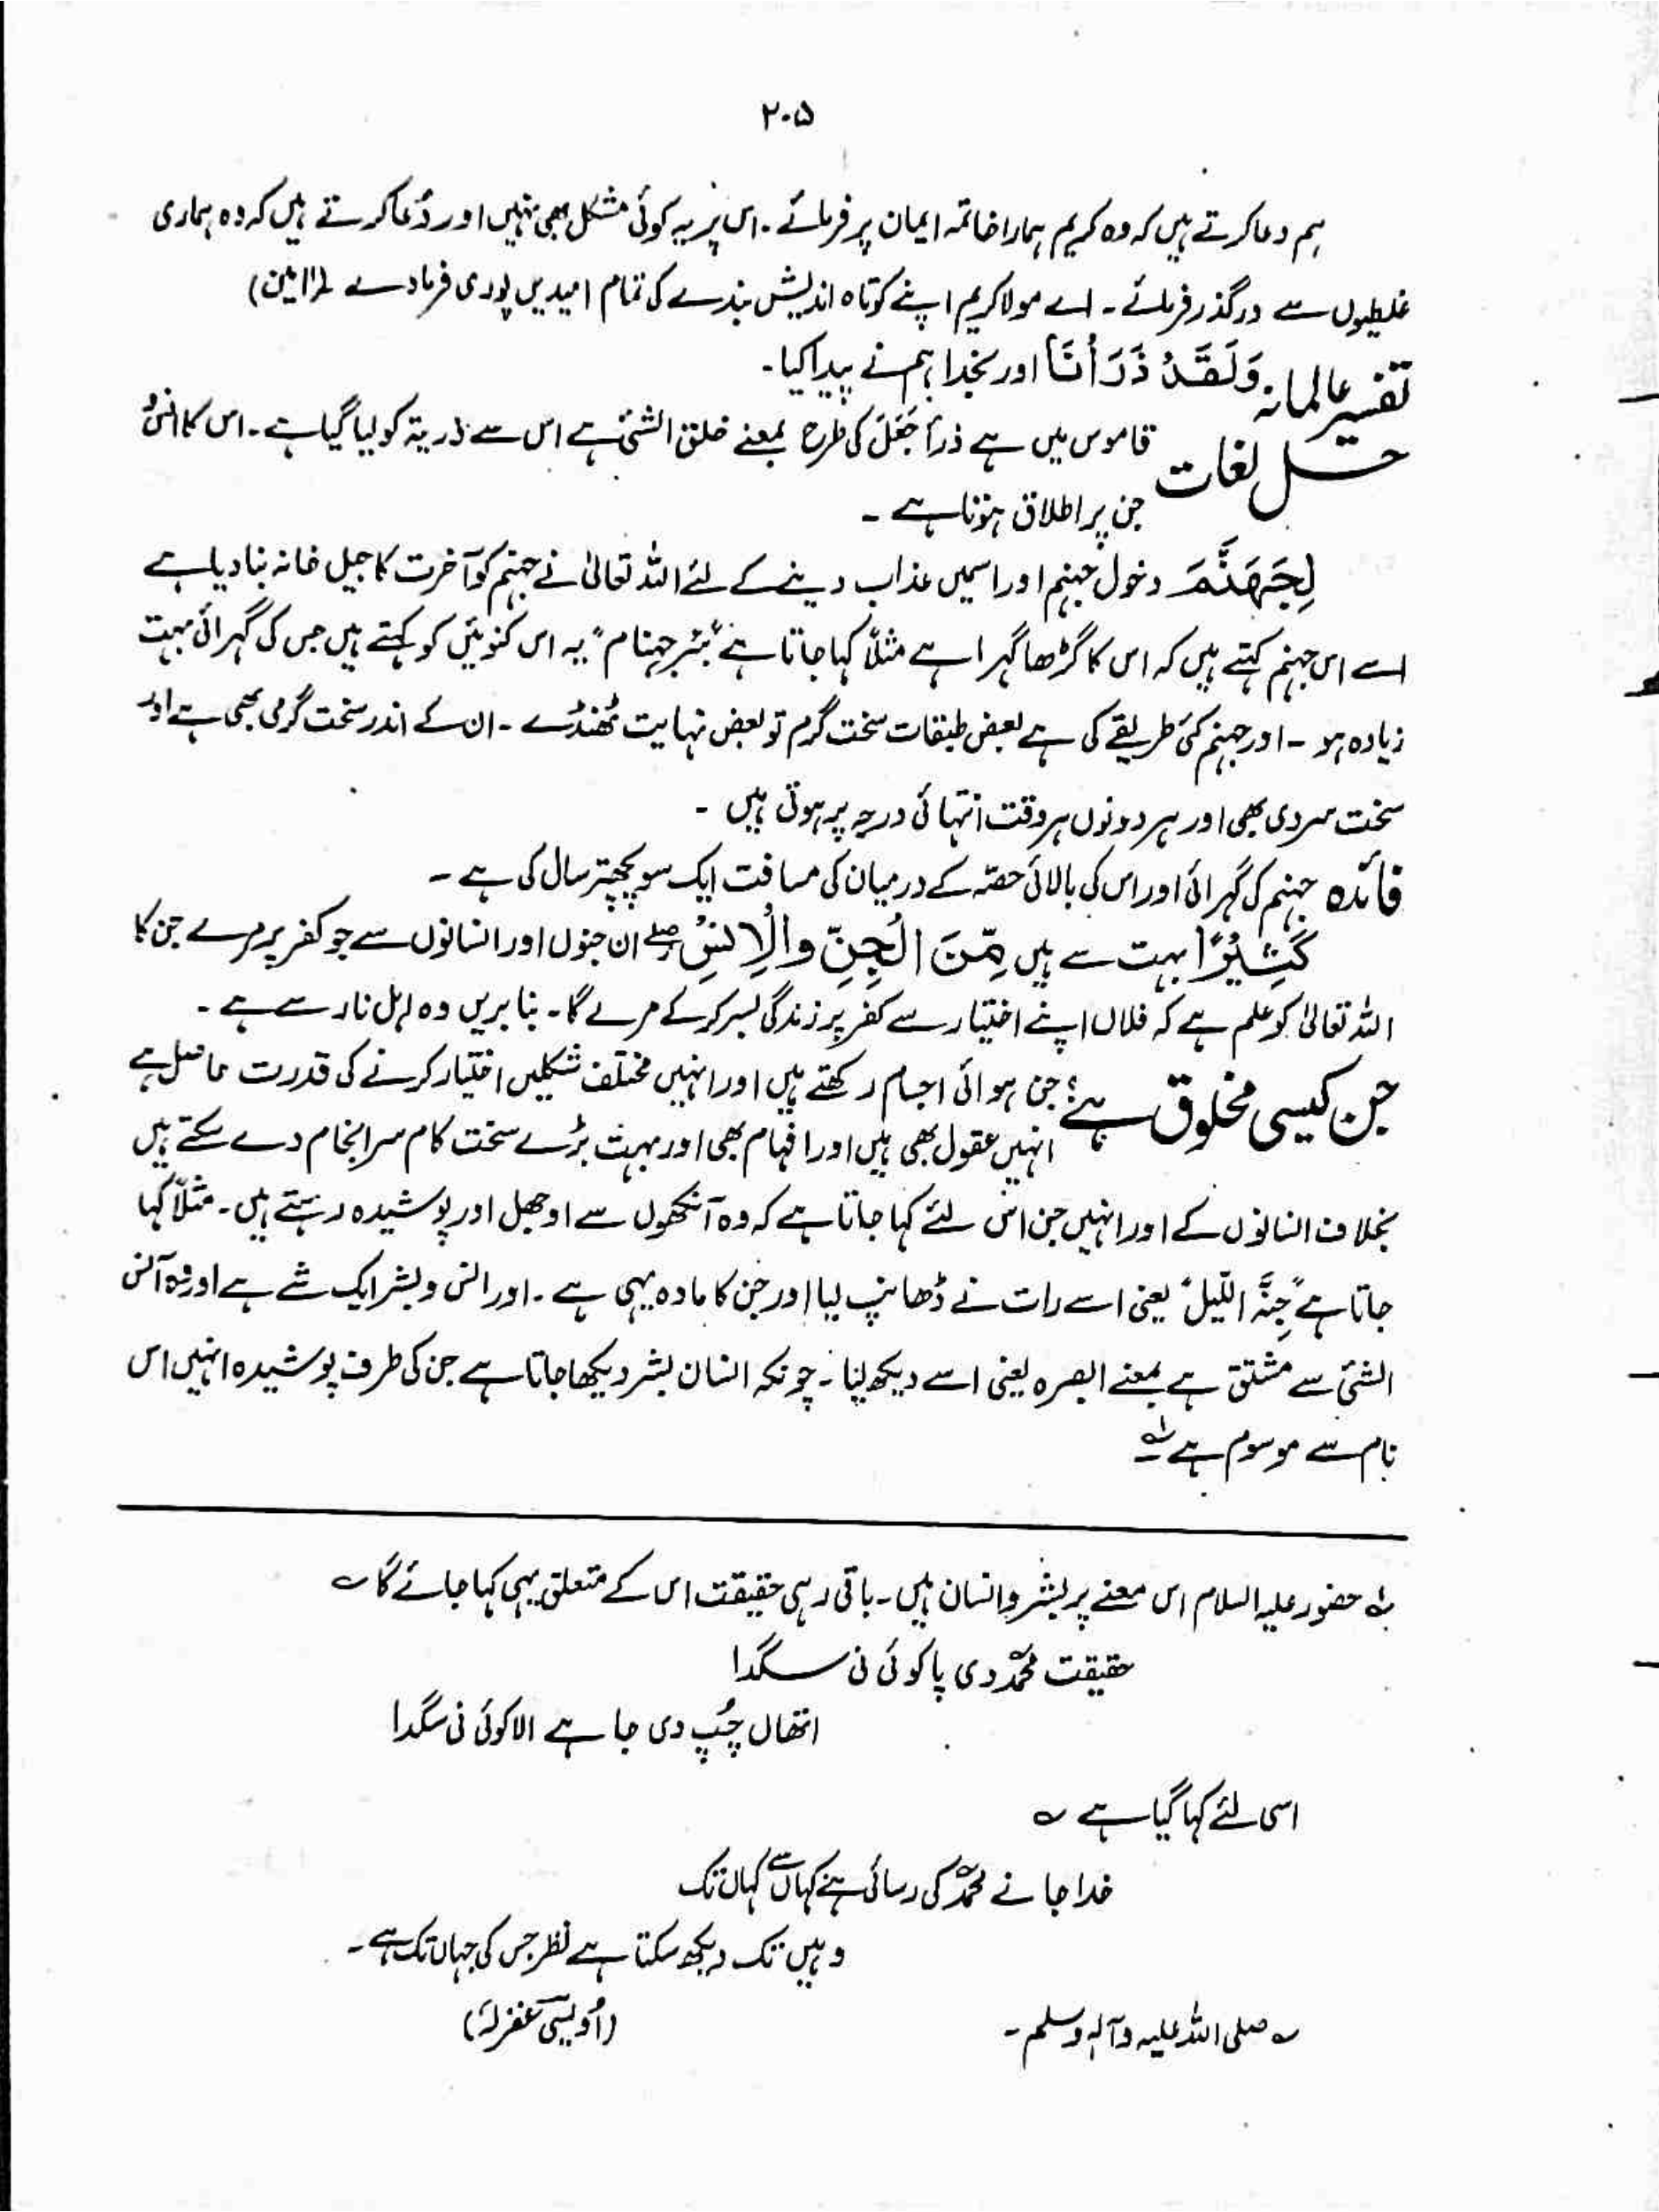 ۲۰۵
ہم دعا کرتے ہیں کہ وہ کریم ہمارا خاتمہ ایمان پر فرمائے۔ اس پر یہ کوئی مشکل بھی نہیں اور دُعا کرتے ہیں کہ وہ ہماری
غلیطیوں سے درگذر فرمائے۔ اے مولا کریم اپنے کوتاہ اندیش بندے کی تمام امیدیں پوری فرمادے (آمین)
تفسیر عالمانہ وَلَقَدْ ذَرَأْنَا اور بخدا ہم نے پیدا کیا۔
حل لغات قاموس میں ہے ذرأ جَعَلَ کی طرح بمعنے خلق الشئ ہے اس سے ذریۃ کو لیا گیا ہے۔ اس کا انسُ
جن پر اطلاق ہوتا ہے ۔
لِجَهَنَّمَ دخول جہنم اور اسمیں عذاب دینے کے لئے اللہ تعالیٰ نے جہنم کو آخرت کا جیل خانہ بنا دیا ہے
اسے اس جہنم کہتے ہیں کہ اس کا گڑھا گہرا ہے مثلاً کہا جاتا ہے ”بئر جہنام“ یہ اس کنوئیں کو کہتے ہیں جس کی گہرائی بہت
زیادہ ہو ۔ اور جہنم کئی طریقے کی ہے بعض طبقات سخت گرم تو بعض نہایت ٹھنڈے ۔ ان کے اندر سخت گرمی بھی ہے اور
سخت سردی بھی اور ہر دونوں ہر وقت انتہائی درجہ پر ہوتی ہیں ۔
فائدہ جہنم کی گہرائی اور اس کی بالائی حصّہ کے درمیان کی مسافت ایک سو پچھتر سال کی ہے ۔
كَثِيْرًا بہت سے ہیں مِّنَ الْجِنِّ والْاِنْسِ ان جنوں اور انسانوں سے جو کفر پر مرے جن کا
اللہ تعالیٰ کو علم ہے کہ فلاں اپنے اختیار سے کفر پر زندگی بسر کر کے مرے گا۔ بنا بریں وہ اہل نار سے ہے ۔
جن کیسی مخلوق ہے؟ جن ہوائی اجسام رکھتے ہیں اور انہیں مختلف شکلیں اختیار کرنے کی قدرت حاصل ہے
انہیں عقول بھی ہیں اور افہام بھی اور بہت بڑے سخت کام سرانجام دے سکتے ہیں
بخلاف انسانوں کے اور انہیں جن اس لئے کہا جاتا ہے کہ وہ آنکھوں سے اوجھل اور پوشیدہ رہتے ہیں ۔ مثلاً کہا
جاتا ہے ”جنّہ اللیل“ یعنی اسے رات نے ڈھانپ لیا اور جن کا مادہ یہی ہے ۔ اور انس و بشر ایک شے ہے اور وہ آنس
الشئ سے مشتق ہے بمعنے ابصرہ یعنی اسے دیکھ لیا ۔ چونکہ انسان بشر دیکھا جاتا ہے جن کی طرف پوشیدہ انہیں اس
نام سے موسوم ہے لہ
لہ حضور علیہ السلام اس معنے پر بشر و انسان ہیں ۔ باقی رہی حقیقت اس کے متعلق یہی کہا جائے گا ؎
حقیقت محمدؐ دی پا کوئی نی سگدا
اتھاں چُپ دی جا ہے الا کوئی نی سگدا
اسی لئے کہا گیا ہے ؎
خدا جانے محمدؐ کی رسائی ہے کہاں سے کہاں تک
وہیں تک دیکھ سکتا ہے نظر جس کی جہاں تک ہے ۔
؎ صلی اللہ علیہ وآلہٖ وسلم ۔ (اُویسی غفرلہٗ)